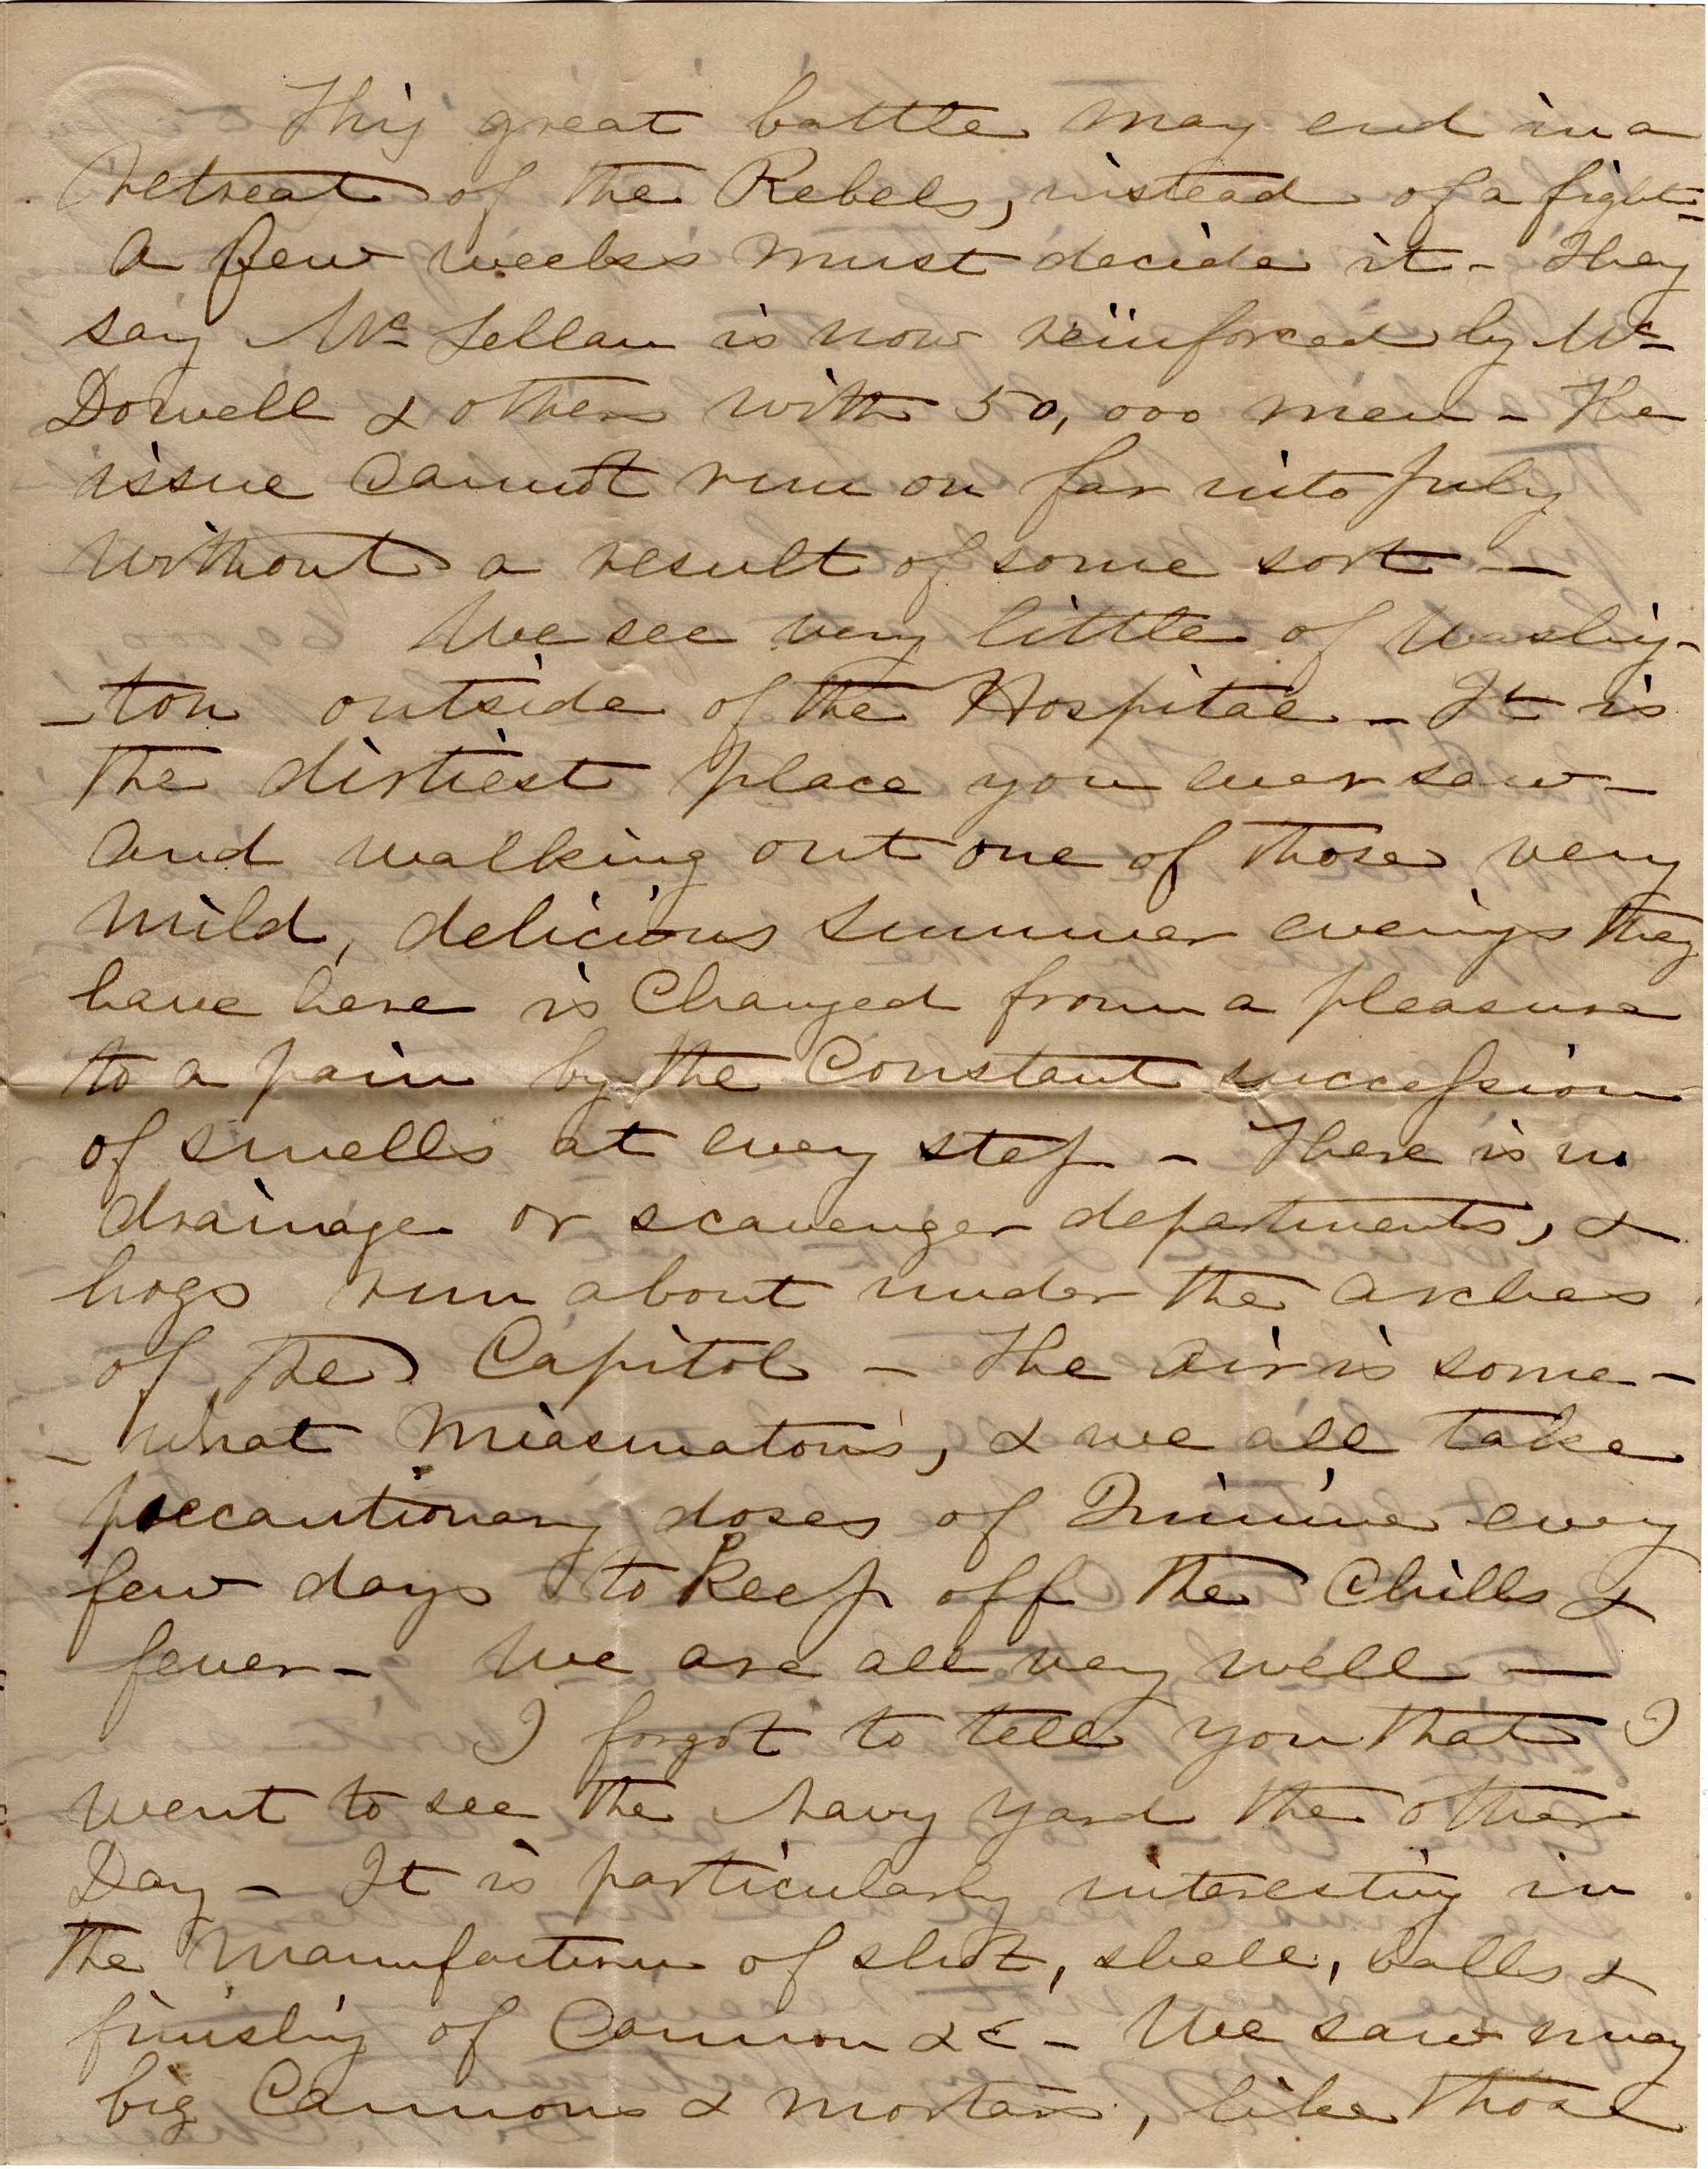 This great battle may end in a
retreat of the Rebels, instead of a fight -
A few weeks must decide it - They
say Mc Lellan is now reïnforced by Mc
Dowell & others with 50,000 men - The
issue cannot run on far into July
without a result of some sort —
We see very little of Washing-
-ton outside of the Hospital - It is
the dirtiest place you ever saw -
And walking out one of those very
mild, delicious summer evenings they
have here is changed from a pleasure
to a pain by the constant succession
of smells at every step - There is no
drainage or scavenger departments, &
hogs run about under the arches
of the Capitol - The air is some-
-what miasmatous, & we all take
precautionary doses of Quinine every
few days to keep off the Chills &
fever - We are all very well —
I forgot to tell you that I
went to see the Navy Yard the other
Day - It is particularly interesting in
the manufacture of shot, shell, balls &
finishing of Cannon &c - We saw many
big Cannons & mortars, like those